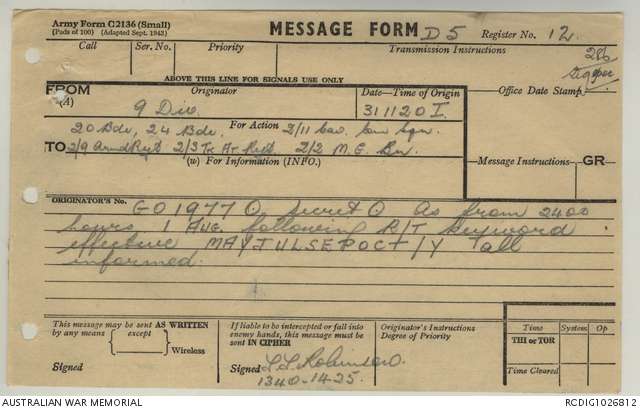 Army Form C2136 (Small)
(Pads of 100) (Adapted Sept. 1943)
MESSAGE FORM D5 Register No. 12
Call Ser. No. Priority Transmission Instructions
ABOVE THIS LINE FOR SIGNALS USE ONLY
FROM Originator Date-Time of Origin Office Date Stamp
(A) 9 Div. 311120 I
20 Bde, 24 Bde, For Action 2/11 Cav. Sqn.
TO 2/9 Armd Regt 2/3 Tk At Regt 2/2 M.G. Bn. Message Instructions GR
(w) For Information (INFO.)
ORIGINATOR'S No.
GO1977 O secret O As from 2400
hours 1 AUG. following R/T keyword
effective MAYJULSEPOCT/Y all
informed.
This message may be sent AS WRITTEN
by any means except
Wireless
Signed
If liable to be intercepted or fall into
enemy hands, this message must be
sent IN CIPHER
Signed Robinson
1340-1425
Originator's Instructions
Degree of Priority
Time System Op
THI or TOR
Time Cleared
AUSTRALIAN WAR MEMORIAL RCDIG1026812